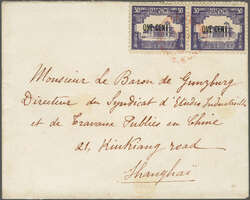 30 30 30 30
ONE CENT ONE CENT
Monsieur le Baron de Gunzburg
Directeur du Syndicat d'Etudes Industrielles
et de Travaux Publics en Chine
21, Kiukiang road
Shanghaï